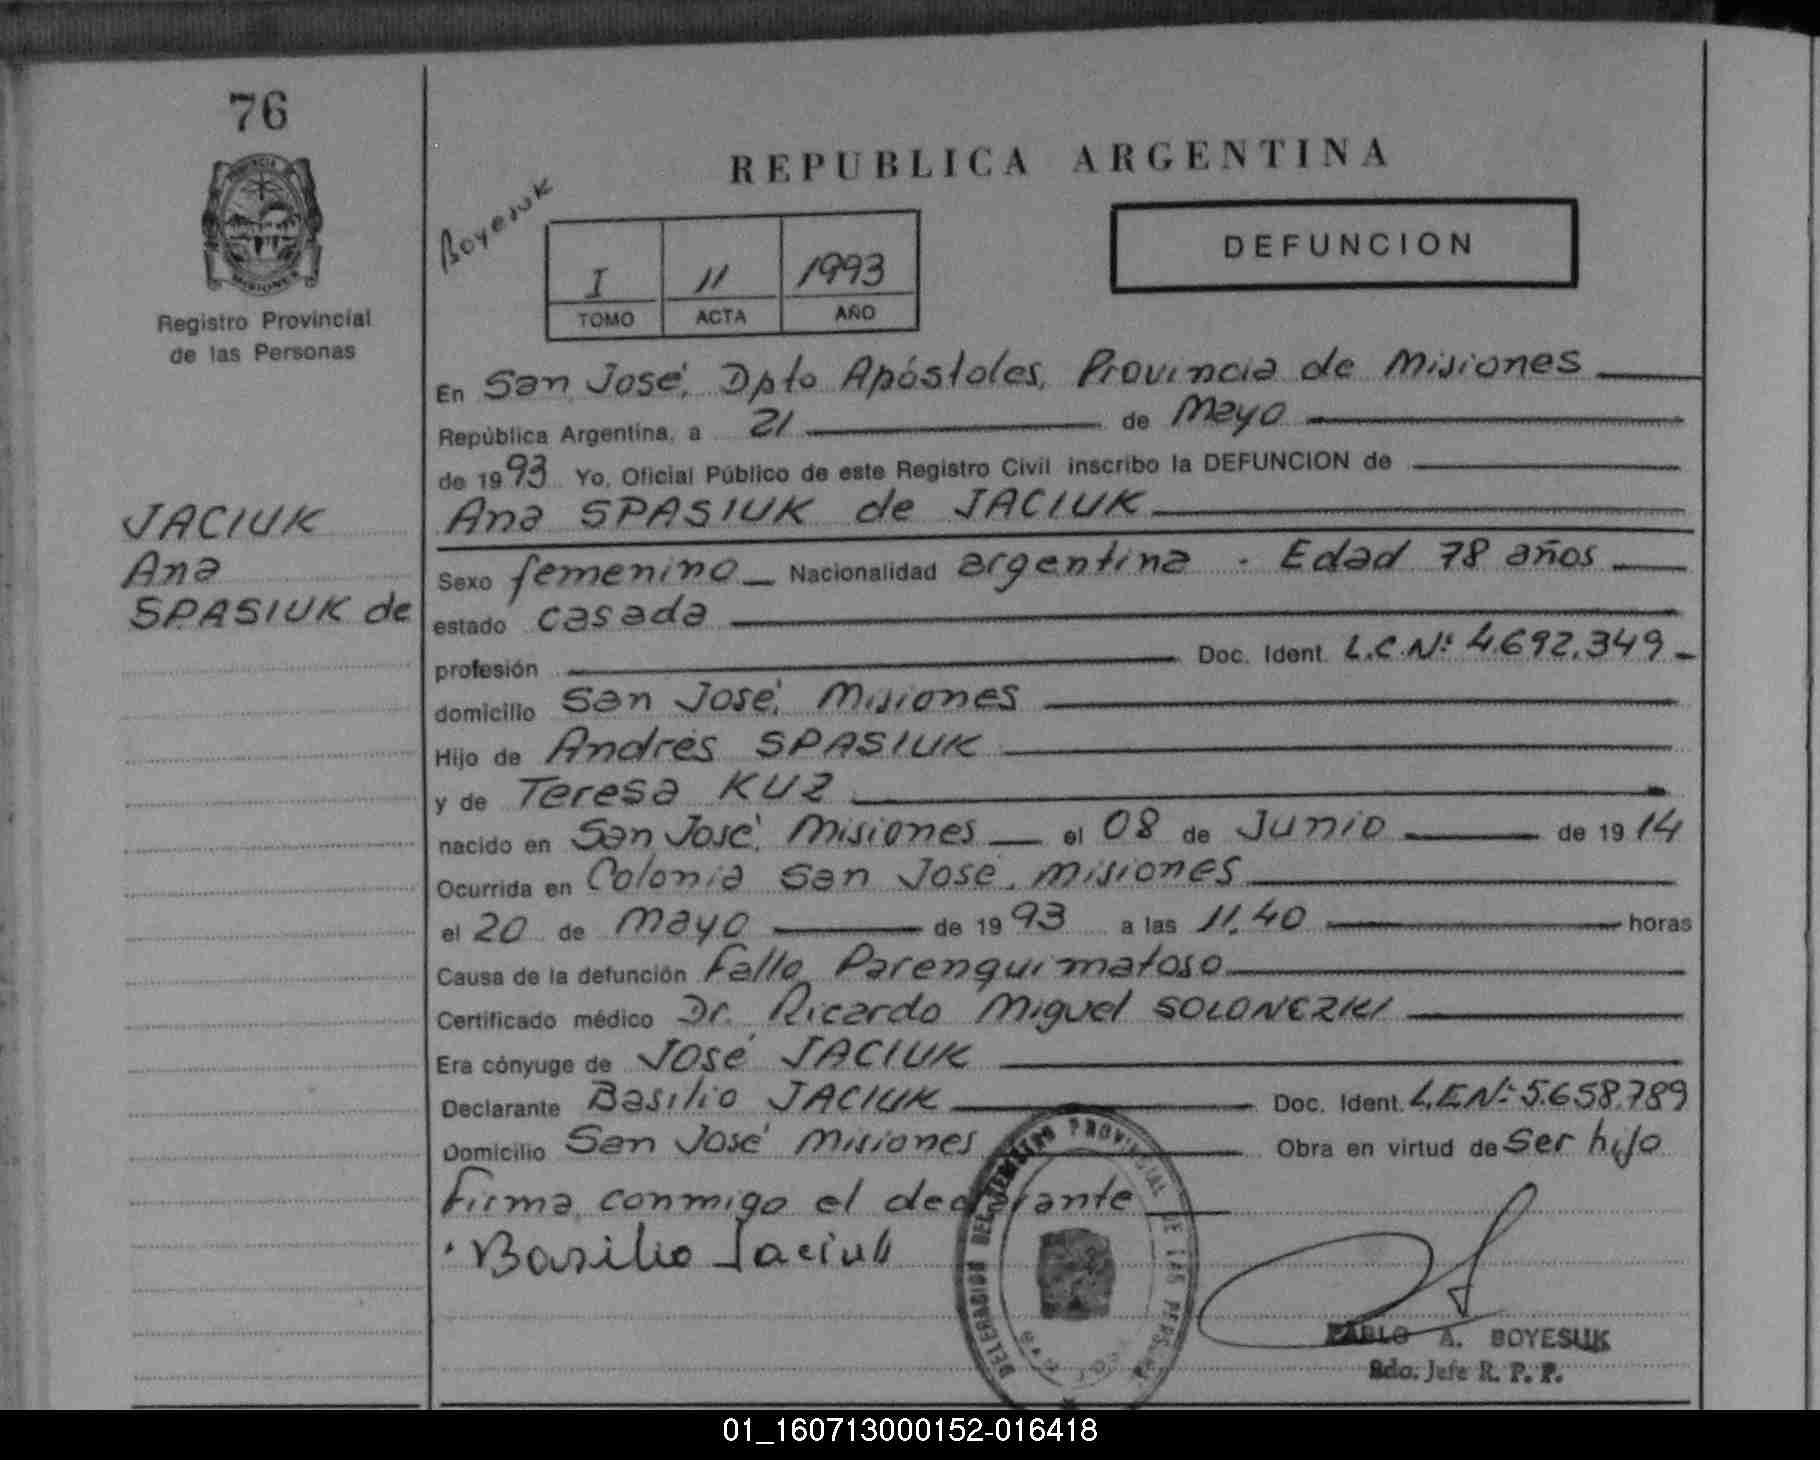 76
REPUBLICA ARGENTINA
Boyesuk
DEFUNCION
I 11 1993
TOMO ACTA AÑO
PROVINCIA
MISIONES
Registro Provincial
de las Personas
En San José, Dpto Apóstoles, Provincia de Misiones
República Argentina, a 21 de Mayo
de 1993 Yo, Oficial Público de este Registro Civil inscribo la DEFUNCION de
Ana SPASIUK de JACIUK
JACIUK
Ana
SPASIUK de
Sexo femenino Nacionalidad argentina - Edad 78 años
estado casada
profesión Doc. Ident. L.C.Nº 4.692.349
domicilio San José, Misiones
Hijo de Andrés SPASIUK
y de Teresa KUZ
nacido en San José, Misiones el 08 de Junio de 1914
Ocurrida en Colonia San José, Misiones
el 20 de Mayo de 1993 a las 11,40 horas
Causa de la defunción Fallo Parenquimatoso
Certificado médico Dr. Ricardo Miguel SOLONEZKI
Era cónyuge de José JACIUK
Declarante Basilio JACIUK Doc. Ident. L.E.Nº 5.658.789
Domicilio San José Misiones Obra en virtud de Ser hijo
Firma conmigo el declarante
Basilio Jaciuk
DELEGACION DEL REGISTRO PROVINCIAL DE LAS PERSONAS
PABLO A. BOYESUK
Sdo. Jefe R. P. P.
01_160713000152-016418